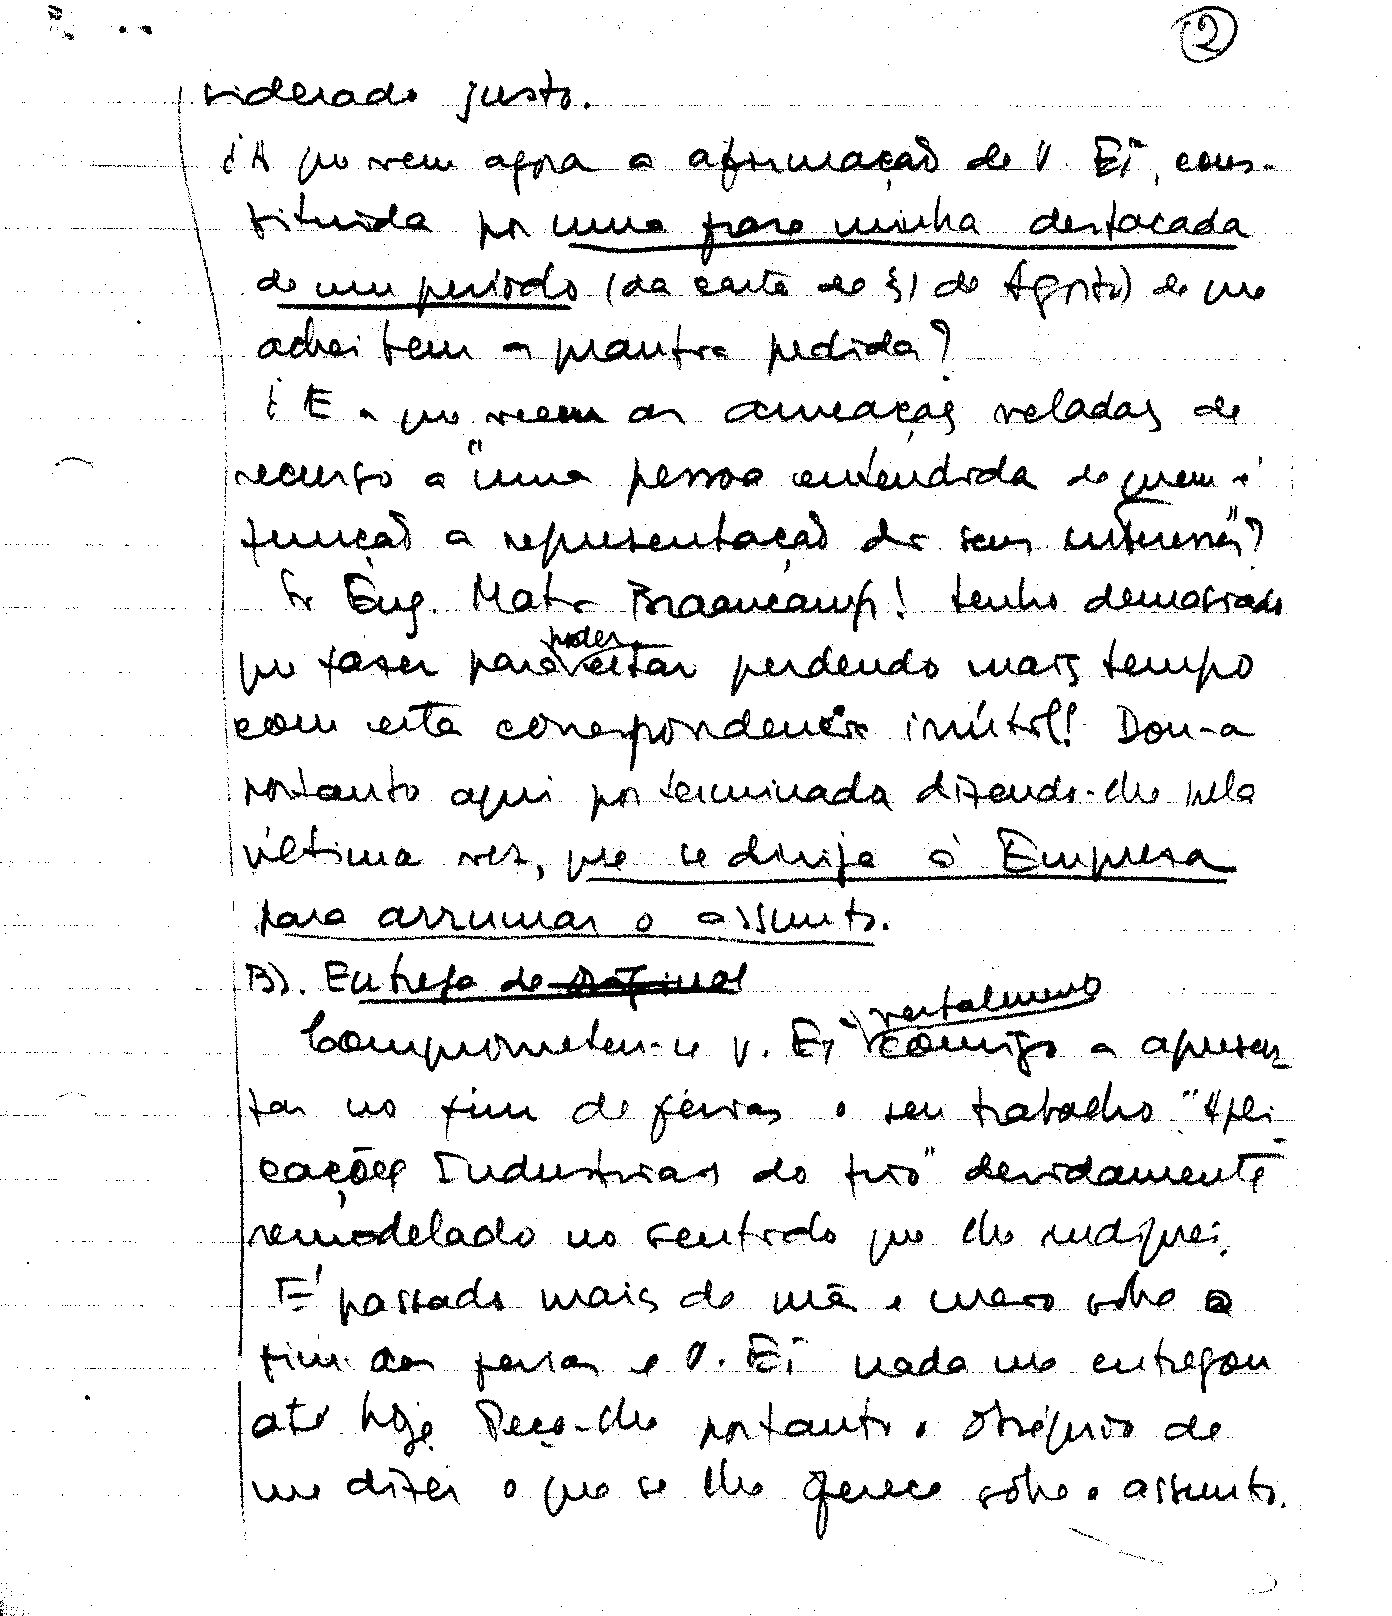 2
siderado justo.
¿A que vem agora a afirmação de V. Exª, cons-
tituida por uma frase minha destacada
de um período (da carta de 31 de Agosto) de que
achei bem a quantia pedida?
¿E a que veem as ameaças veladas de
recurso a "uma pessoa entendida de quem é
função a representação dos seus interesses"?
Sr Eng. Matos Braamcamp! tenho demasiado
que fazer para poder estar perdendo mais tempo
com esta correspondencia inútil! Dou-a
portanto aqui por terminada dizendo-lhe pela
última vez, que se dirija à Empresa
para arrumar o assunto.
B). Entrega de original
Comprometeu-se V. Exª verbalmente comigo a apresen-
tar no fim de férias o seu trabalho "Apli
cações Industriais do frio" devidamente
remodelado no sentido que lhe indiquei.
É passado mais de mês e meio sobre o
fim das ferias e V. Exª nada me entregou
até hoje. Peço-lhe portanto o obséquio de
me dizer o que se lhe oferece sôbre o assunto.